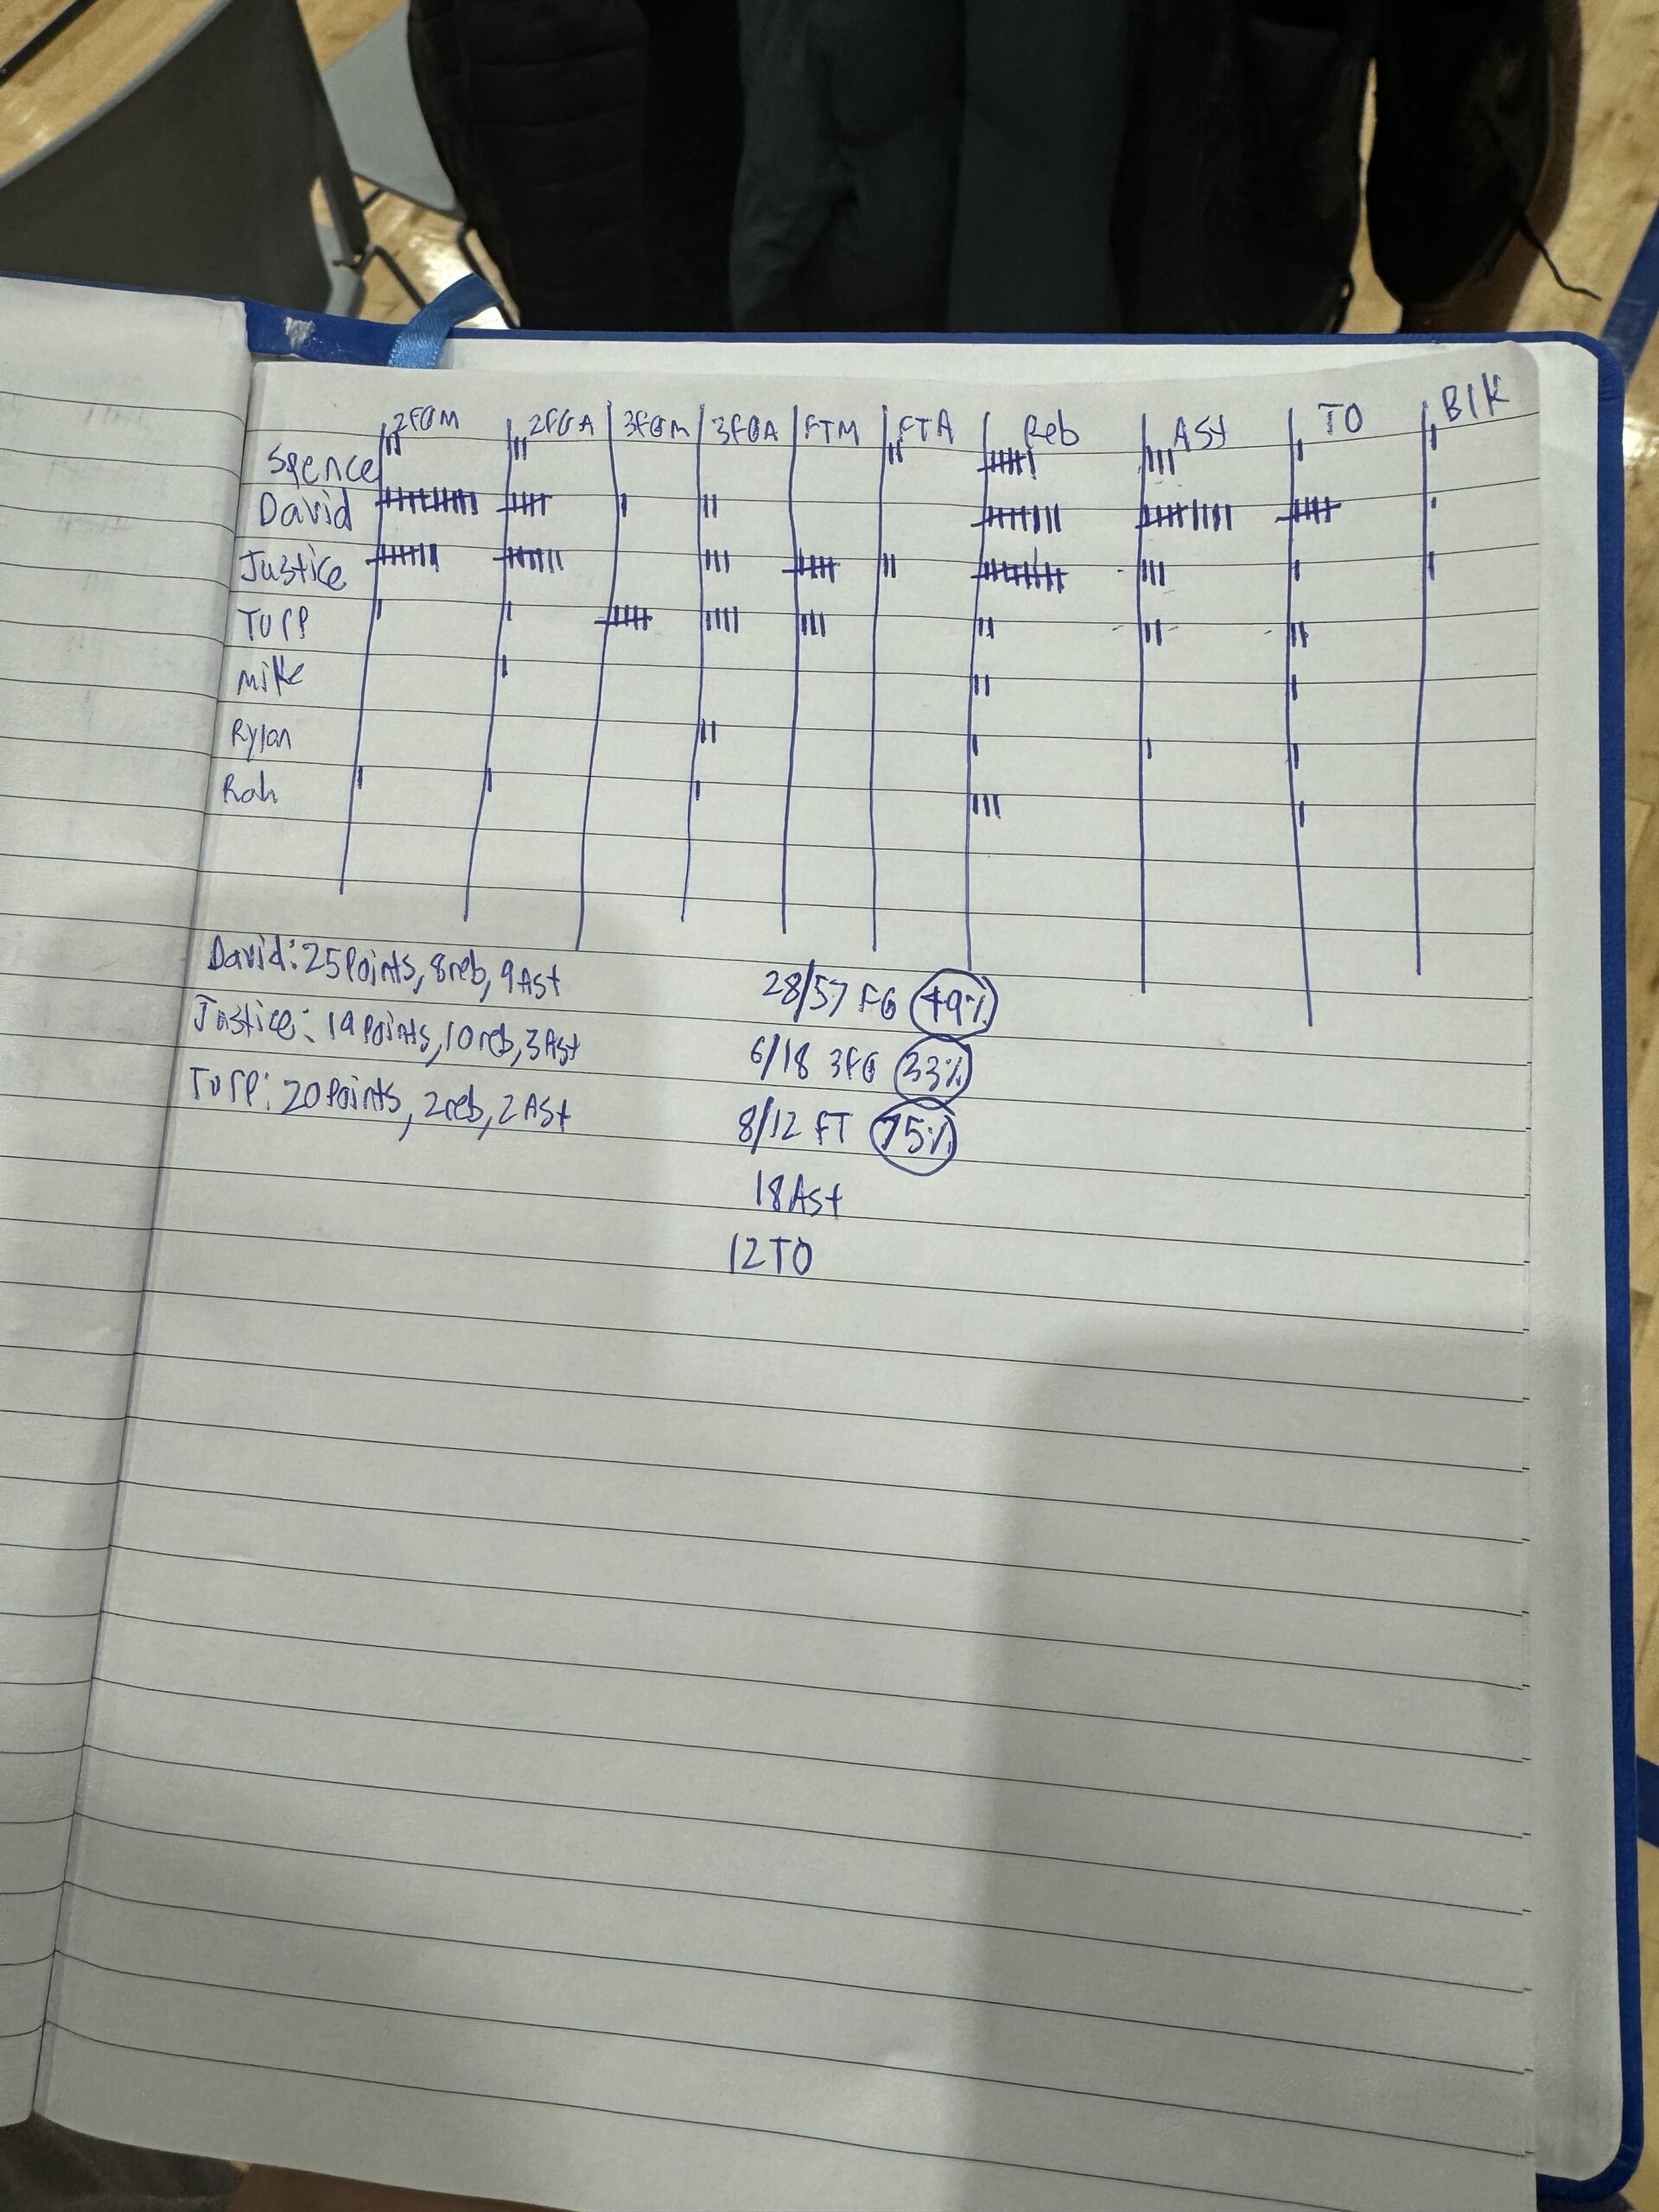 2FGM 2FGA 3FGM 3FGA FTM FTA Reb Ast TO Blk
Spence
David
Justice
Turp
Mike
Rylan
Rah
David: 25 Points, 8 reb, 9 Ast
Justice: 19 Points, 10 reb, 3 Ast
Turp: 20 Points, 2 reb, 2 Ast
28/57 FG 49%
6/18 3FG 33%
8/12 FT 75%
18 Ast
12 TO